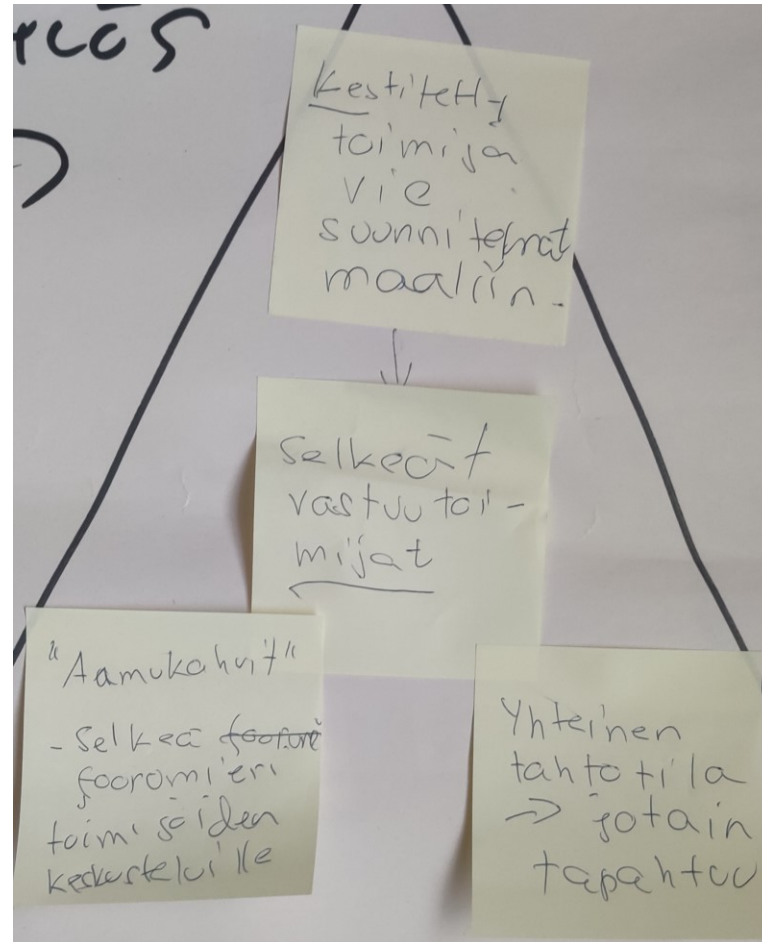 Kestitetty
toimija
vie
suunnitelmat
maaliin.
Selkeät
vastuutoi-
mijat
"Aamukahvit"
- Selkeä
foorumi eri
toimijoiden
keskusteluille
Yhteinen
tahtotila
→ jotain
tapahtuu